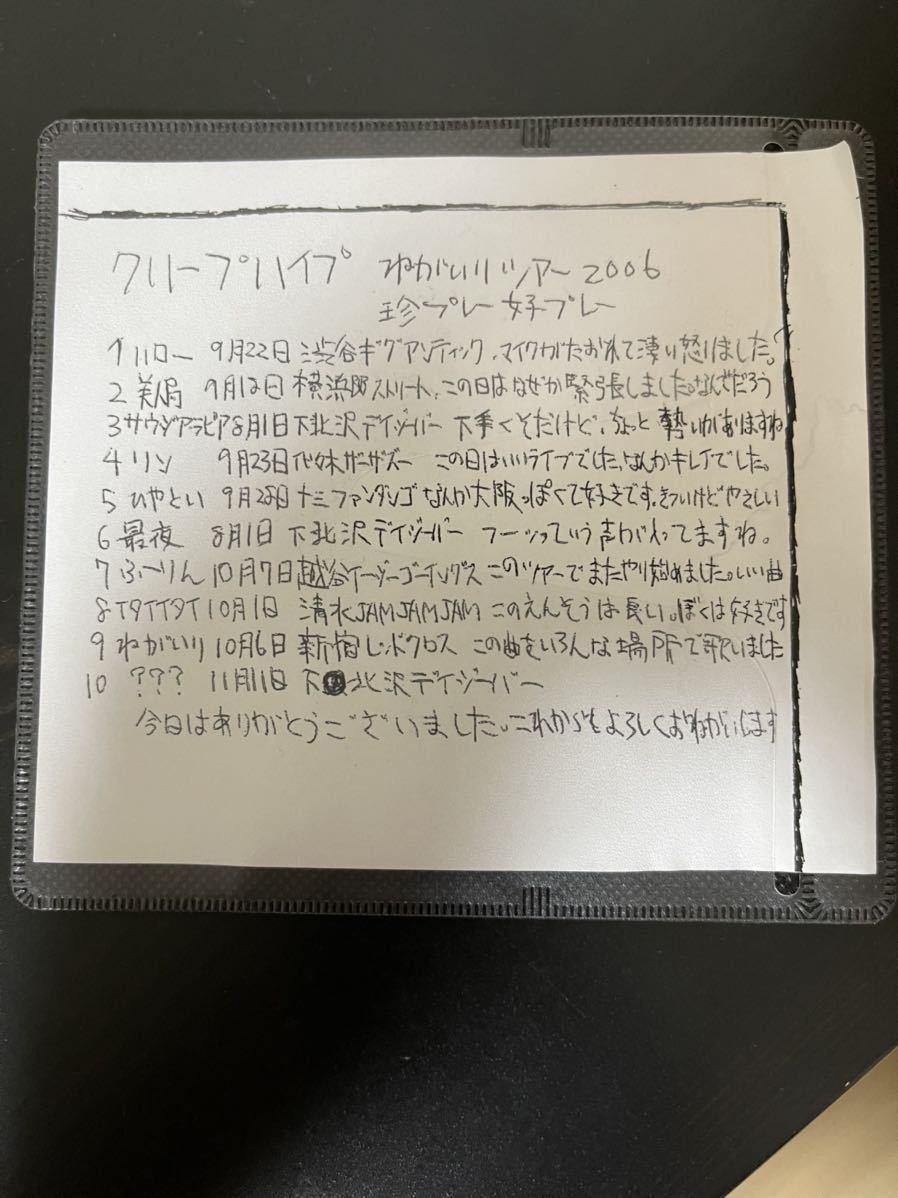 クリープハイプ ねがいりツアー2006
珍プレー好プレー
1 ハロー 9月22日 渋谷ギグアンティック、マイクがたおれて凄い怒りました。
2 美局 9月12日 横浜BBストリート、この日はなぜか緊張しました。なんでだろう
3 サウジアラビア 8月1日 下北沢デイジーバー 下手くそだけど、ちょっと勢いがありますね
4 リンリン 9月23日 代々木ザーザズー この日はいいライブでした。なんかキレイでした。
5 ひやとい 9月28日 十三ファンダンゴ なんか大阪っぽくて好きです。きついけどやさしい
6 最夜 8月1日 下北沢デイジーバー フーッっていう声が入ってますね。
7 ふーりん 10月7日 越谷イージーゴーイングス このツアーでまたやり始めました。いい曲
8 イタイイタイ 10月1日 清水JAMJAMJAM このえんそうは長い。ぼくは好きです
9 ねがいり 10月6日 新宿レッドクロス この曲をいろんな場所で歌いました
10 ??? 11月11日 下北沢デイジーバー
今日はありがとうございました。これからもよろしくおねがいします